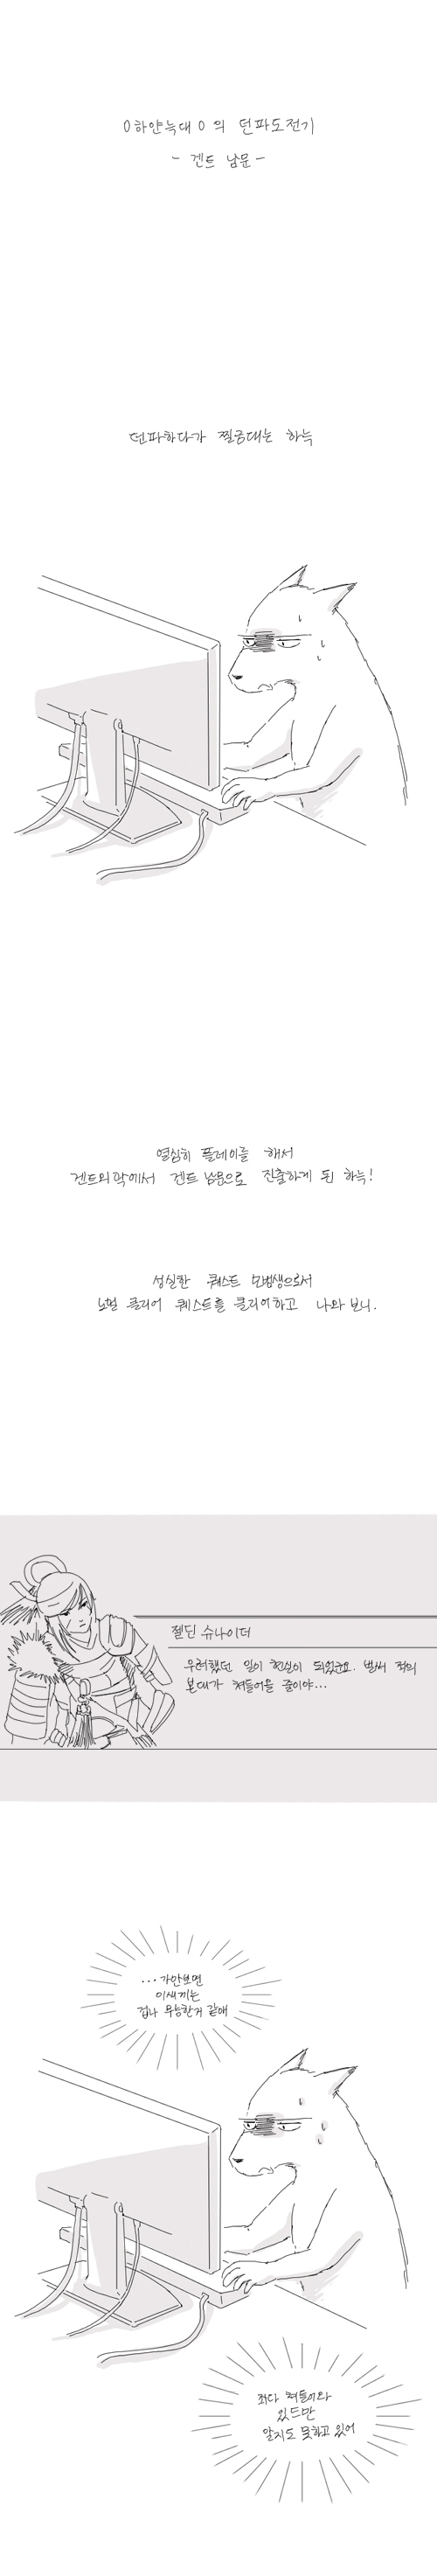 0하얀늑대0의 던파도전기
- 겐트 남문 -
던파하다가 찔끔대는 하늑
열심히 플레이를 해서
겐트외곽에서 겐트 남문으로 진출하게 된 하늑!
성실한 퀘스트 모범생으로서
노멀 클리어 퀘스트를 클리어하고 나와 보니.
젤딘 슈나이더
우려했던 일이 현실이 되었군요. 벌써 적의
본대가 쳐들어올 줄이야...
...가만보면
이새끼는
겁나 무능한거 같애
죄다 쳐들어와
있드만
알지도 못하고 있어